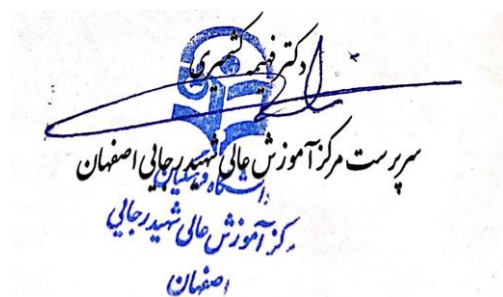 دکتر فهیمه کشیری
سرپرست مرکز آموزش عالی شهید رجایی اصفهان
دانشگاه فرهنگیان
مرکز آموزش عالی شهید رجایی
اصفهان